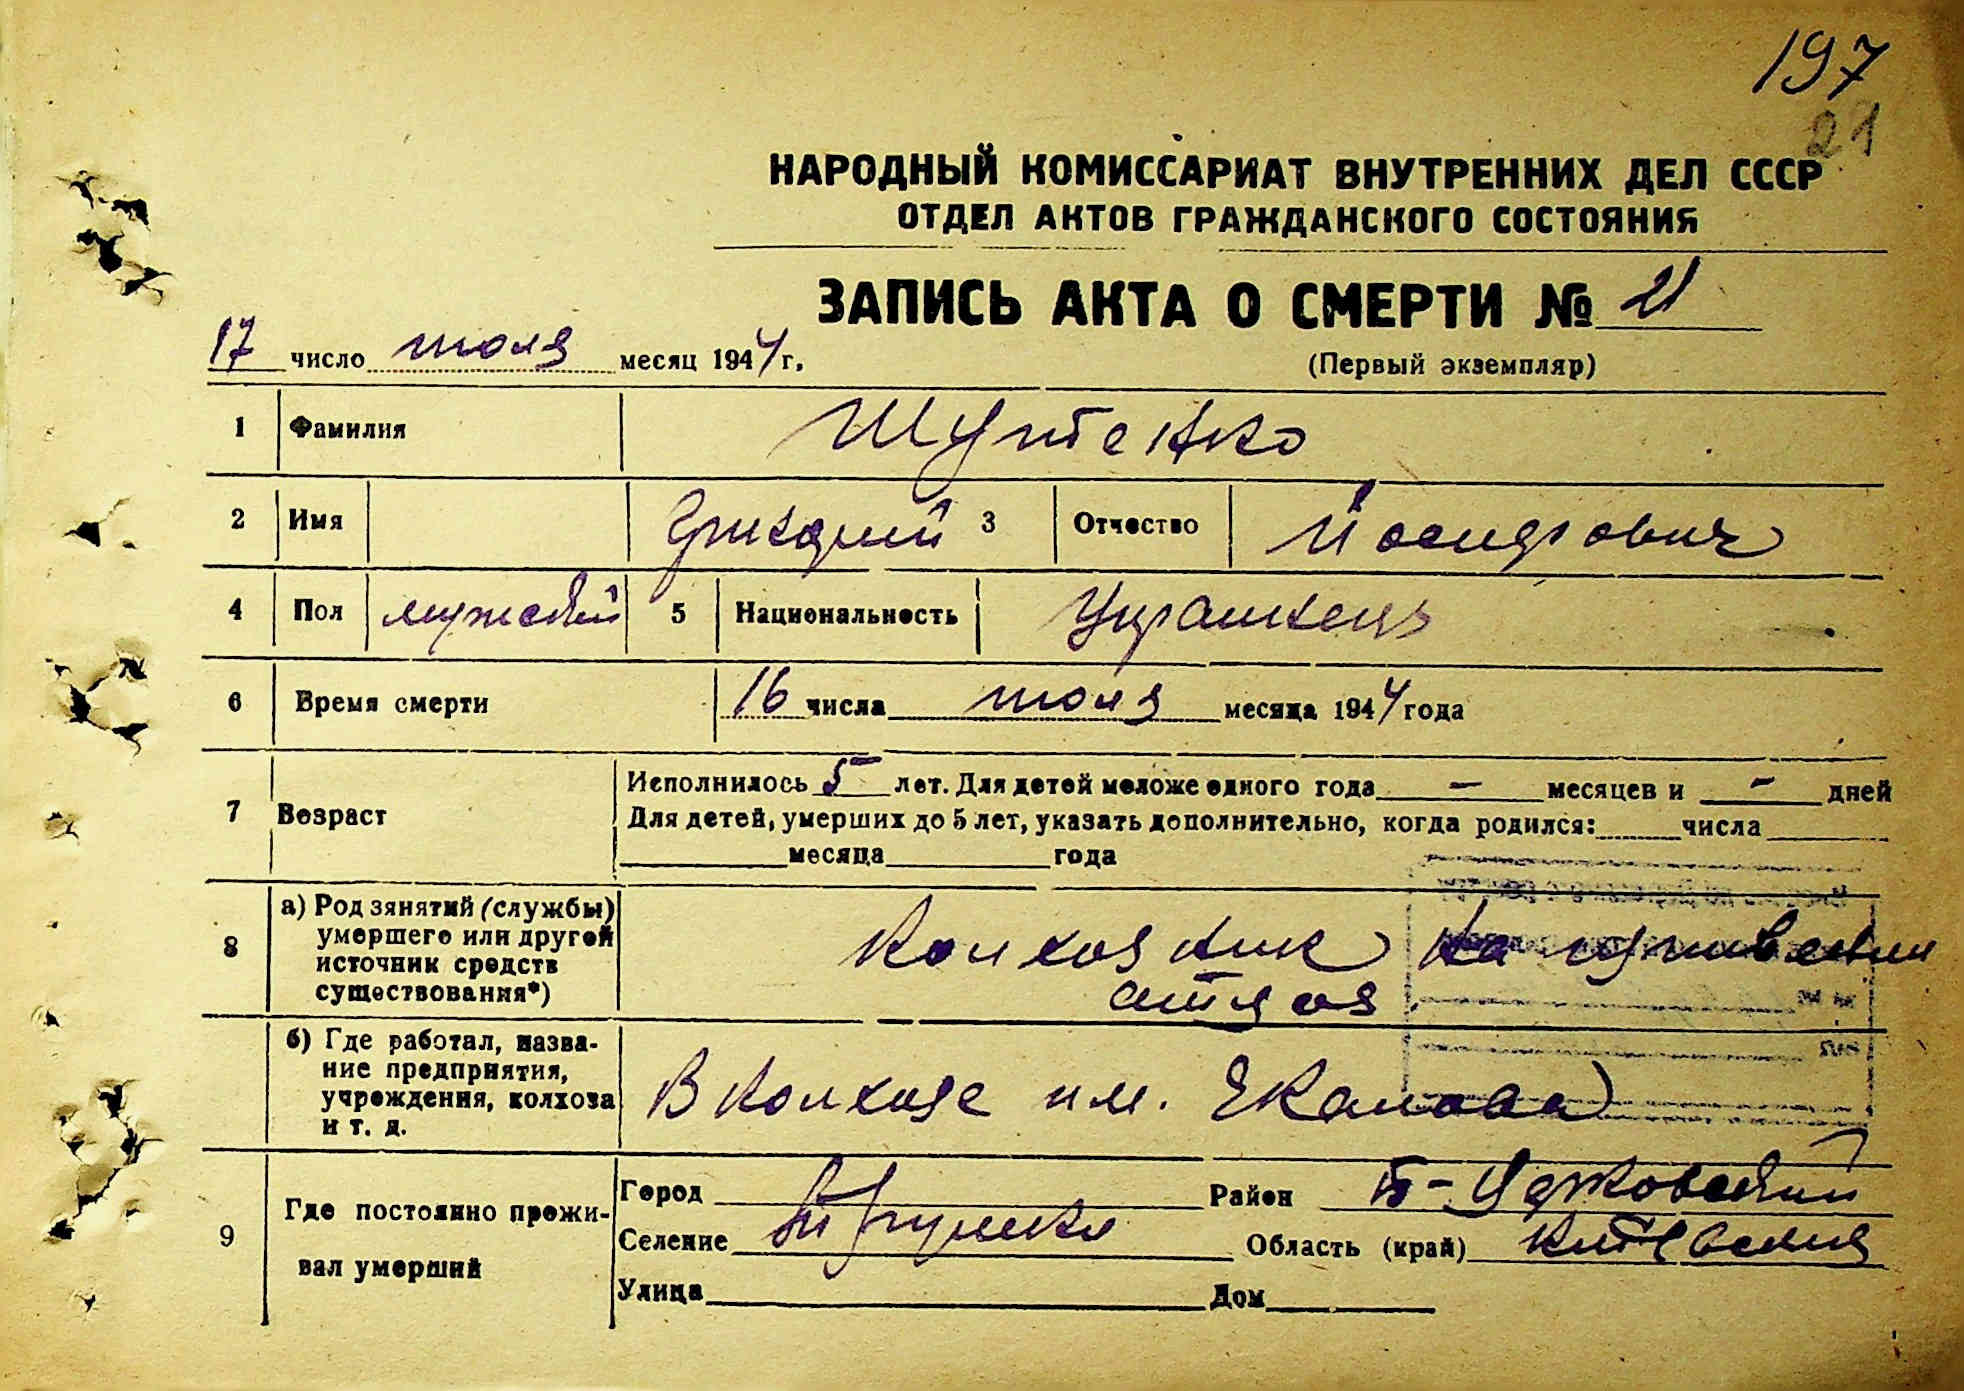 197
21
НАРОДНЫЙ КОМИССАРИАТ ВНУТРЕННИХ ДЕЛ СССР
ОТДЕЛ АКТОВ ГРАЖДАНСКОГО СОСТОЯНИЯ
ЗАПИСЬ АКТА О СМЕРТИ № 21
17 число июля месяц 1944 г.
(Первый экземпляр)
1 Фамилия Шупенко
2 Имя Григорий 3 Отчество Йосипович
4 Пол мужской 5 Национальность Украинець
6 Время смерти 16 числа июля месяца 1944 года
7 Возраст
Исполнилось 5 лет. Для детей моложе одного года - месяцев и - дней
Для детей, умерших до 5 лет, указать дополнительно, когда родился: числа
месяца года
8 а) Род занятий (службы) умершего или другой источник средств существования*)
Колхозник на иждивении
отца
б) Где работал, название предприятия, учреждения, колхоза и т. д.
В колхозе им.
9 Где постоянно проживал умерший
Город Район Б-Церковский
Селение Область (край) Киевская
Улица Дом